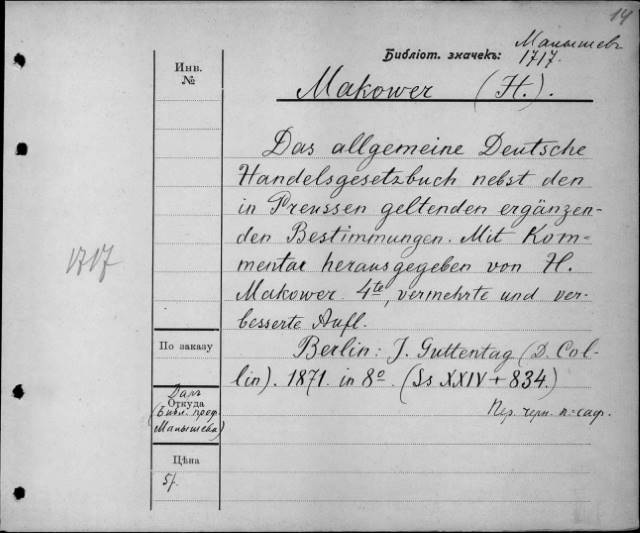 14
Малышевъ
Библіот. значекъ: 1717.
Инв.
№
Makower (H.).
Das allgemeine Deutsche
Handelsgesetzbuch nebst den
in Preussen geltenden ergänzen-
den Bestimmungen. Mit Kom-
mentar herausgegeben von H.
Makower. 4te, vermehrte und ver-
besserte Aufl.
Berlin: J. Guttentag (D. Col-
lin). 1871. in 8º. (Ss XXIV + 834.)
Пер. черн. п.-саф.
1717
По заказу
Даръ
Откуда
(Библ. проф.
Малышева)
Цѣна
5/.